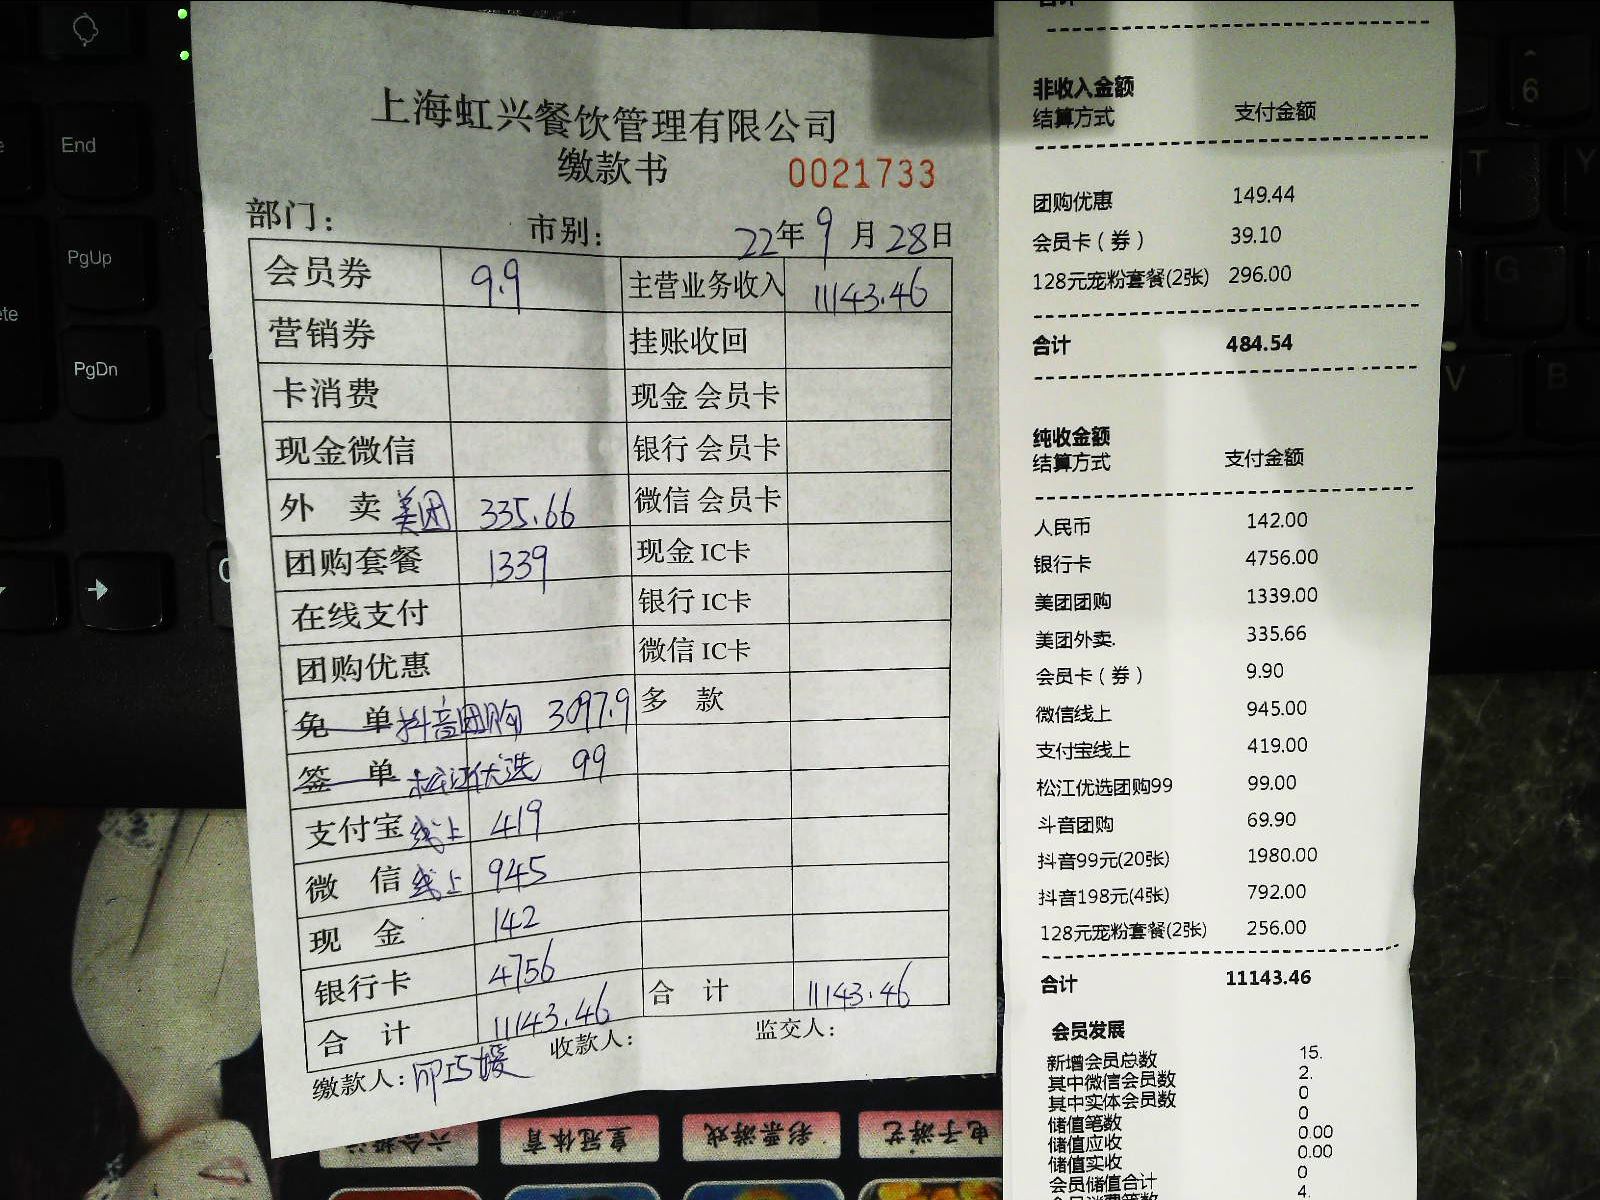 上海虹兴餐饮管理有限公司
缴款书 0021733
部门： 市别： 22年9月28日
会员券 9.9 主营业务收入 11143.46
营销券 挂账收回
卡消费 现金 会员卡
现金微信 银行 会员卡
外 卖 美团 335.66 微信 会员卡
团购套餐 1339 现金 IC卡
在线支付 银行 IC卡
团购优惠 微信 IC卡
免 单 抖音团购 3097.9 多 款
签 单 松江优选 99
支付宝 线上 419
微 信 线上 945
现 金 142
银行卡 4756
合 计 11143.46 合 计 11143.46
缴款人： 收款人： 监交人：
合计
非收入金额
结算方式 支付金额
团购优惠 149.44
会员卡（券） 39.10
128元宠粉套餐(2张) 296.00
合计 484.54
纯收金额
结算方式 支付金额
人民币 142.00
银行卡 4756.00
美团团购 1339.00
美团外卖. 335.66
会员卡（券） 9.90
微信线上 945.00
支付宝线上 419.00
松江优选团购99 99.00
斗音团购 69.90
抖音99元(20张) 1980.00
抖音198元(4张) 792.00
128元宠粉套餐(2张) 256.00
合计 11143.46
会员发展
新增会员总数 15.
其中微信会员数 2.
其中实体会员数 0
储值笔数 0
储值应收 0.00
储值实收 0.00
会员储值合计 0
会员消费笔数 4.
End
PgUp
PgDn
6
T
Y
G
V
B
皇冠体育
彩票游戏
电子游艺